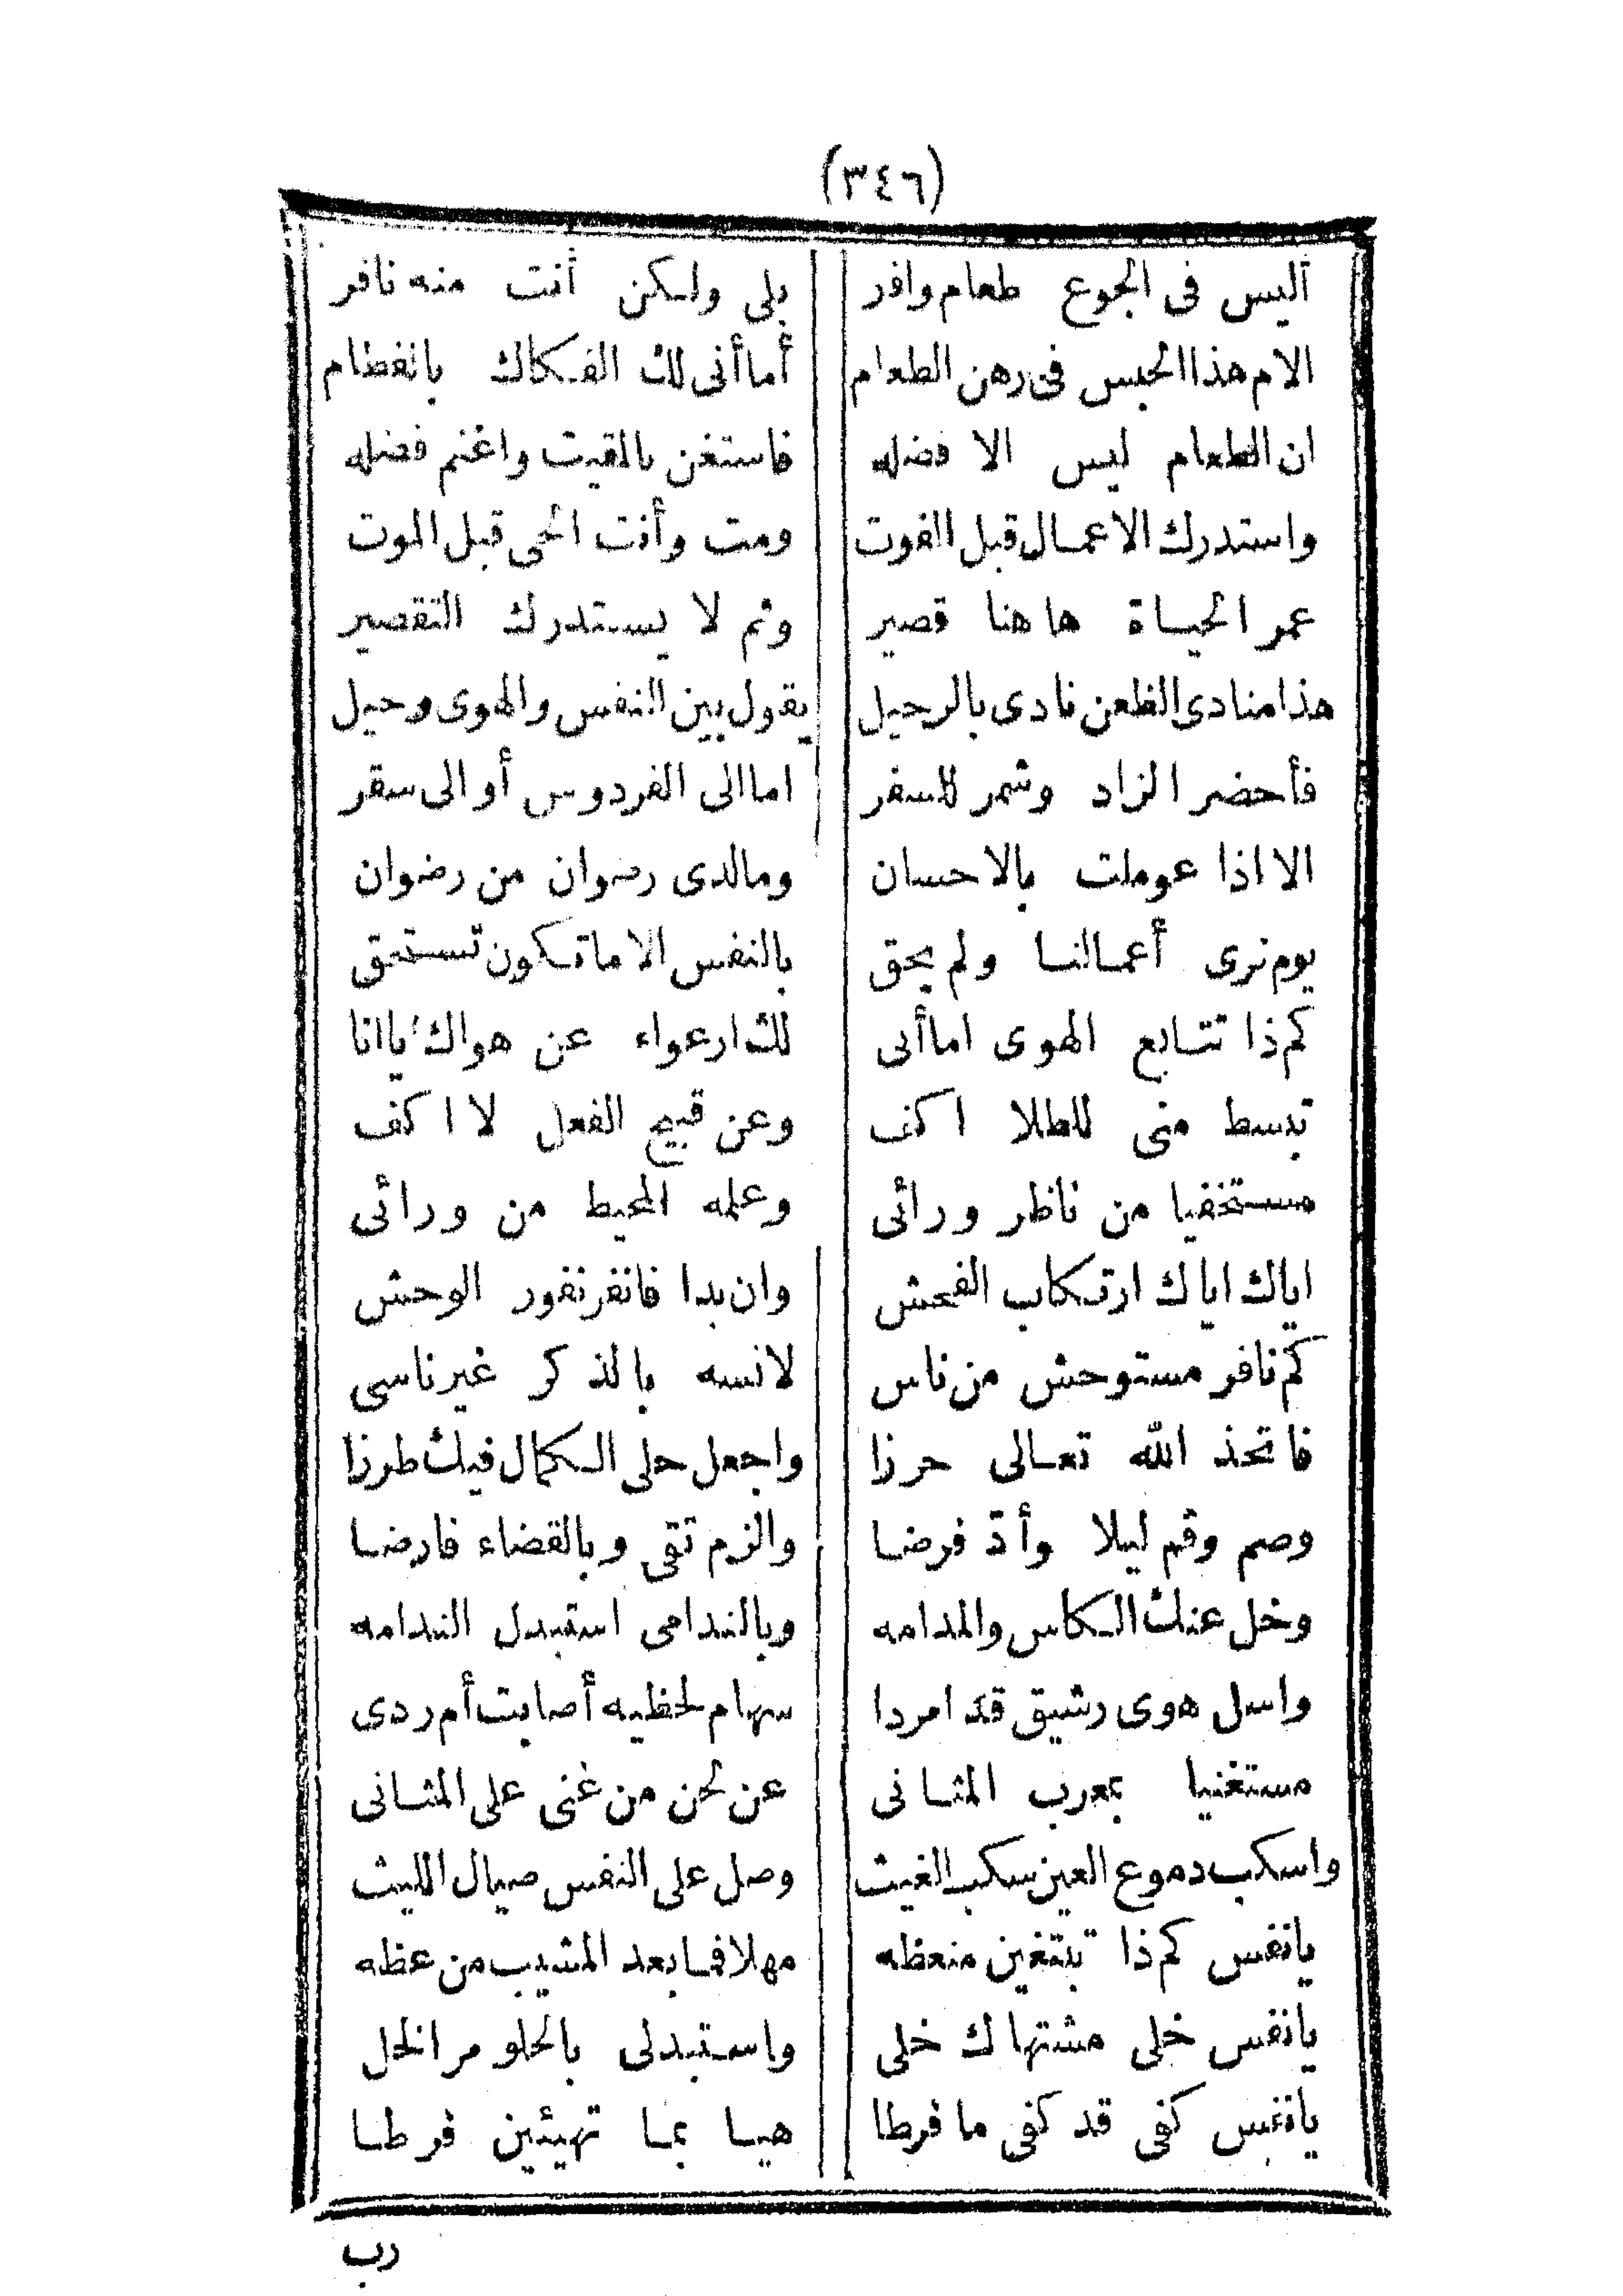 (٣٤٦)
أليس فى الجوع طعام وافر بلى ولكن أنت منه نافر
الام هذا الحبس فى رهن الطعام أما أنى لك الفكاك بانفطام
ان الطعام ليس الا فضله فاستغن بالمقيت واغنم فضله
واستدرك الاعمال قبل الفوت ومت وأنت الحى قبل الموت
عمر الحياة هاهنا قصير وثم لا يستدرك التقصير
هذا منادى الظعن نادى بالرحيل يقول بين النفس والهوى وحيل
فأحضر الزاد وشمر للسفر اما الى الفردوس أو الى سقر
الا اذا عوملت بالاحسان ومالدى رضوان من رضوان
يوم نرى أعمالنا ولم يحق بالنفس الا ما تكون تستحق
كم ذا تتابع الهوى اما أنى لك ارعواء عن هواك يا انا
تبسط منى للطلا اكف وعن قبيح الفعل لا اكف
مستخفيا من ناظر ورائى وعلمه المحيط من ورائى
اياك اياك ارتكاب الفحش وان بدا فانفر نفور الوحش
كم نافر مستوحش من ناس لانسه بالذكر غير ناسى
فاتخذ الله تعالى حرزا واجعل حلى الكمال فيك طرزا
وصم وقم ليلا وأدّ فرضا والزم تقى وبالقضاء فارضا
وخل عنك الكاس والمدامه وبالندامى استبدل الندامه
واسل هوى رشيق قد امردا سهام لحظيه أصابت أم ردى
مستغنيا بمعرب المثانى عن لحن من غنى على المثانى
واسكب دموع العين سكب الغيث وصل على النفس صيال الليث
يانفس كم ذا تبتغين منعظه مهلا فما بعد المشيب من عظه
يانفس خلى مشتهاك خلى واستبدلى بالحلو مر الخل
يانفس كفى قد كفى ما فرطا هيا بما تهيئين فرطا
رب